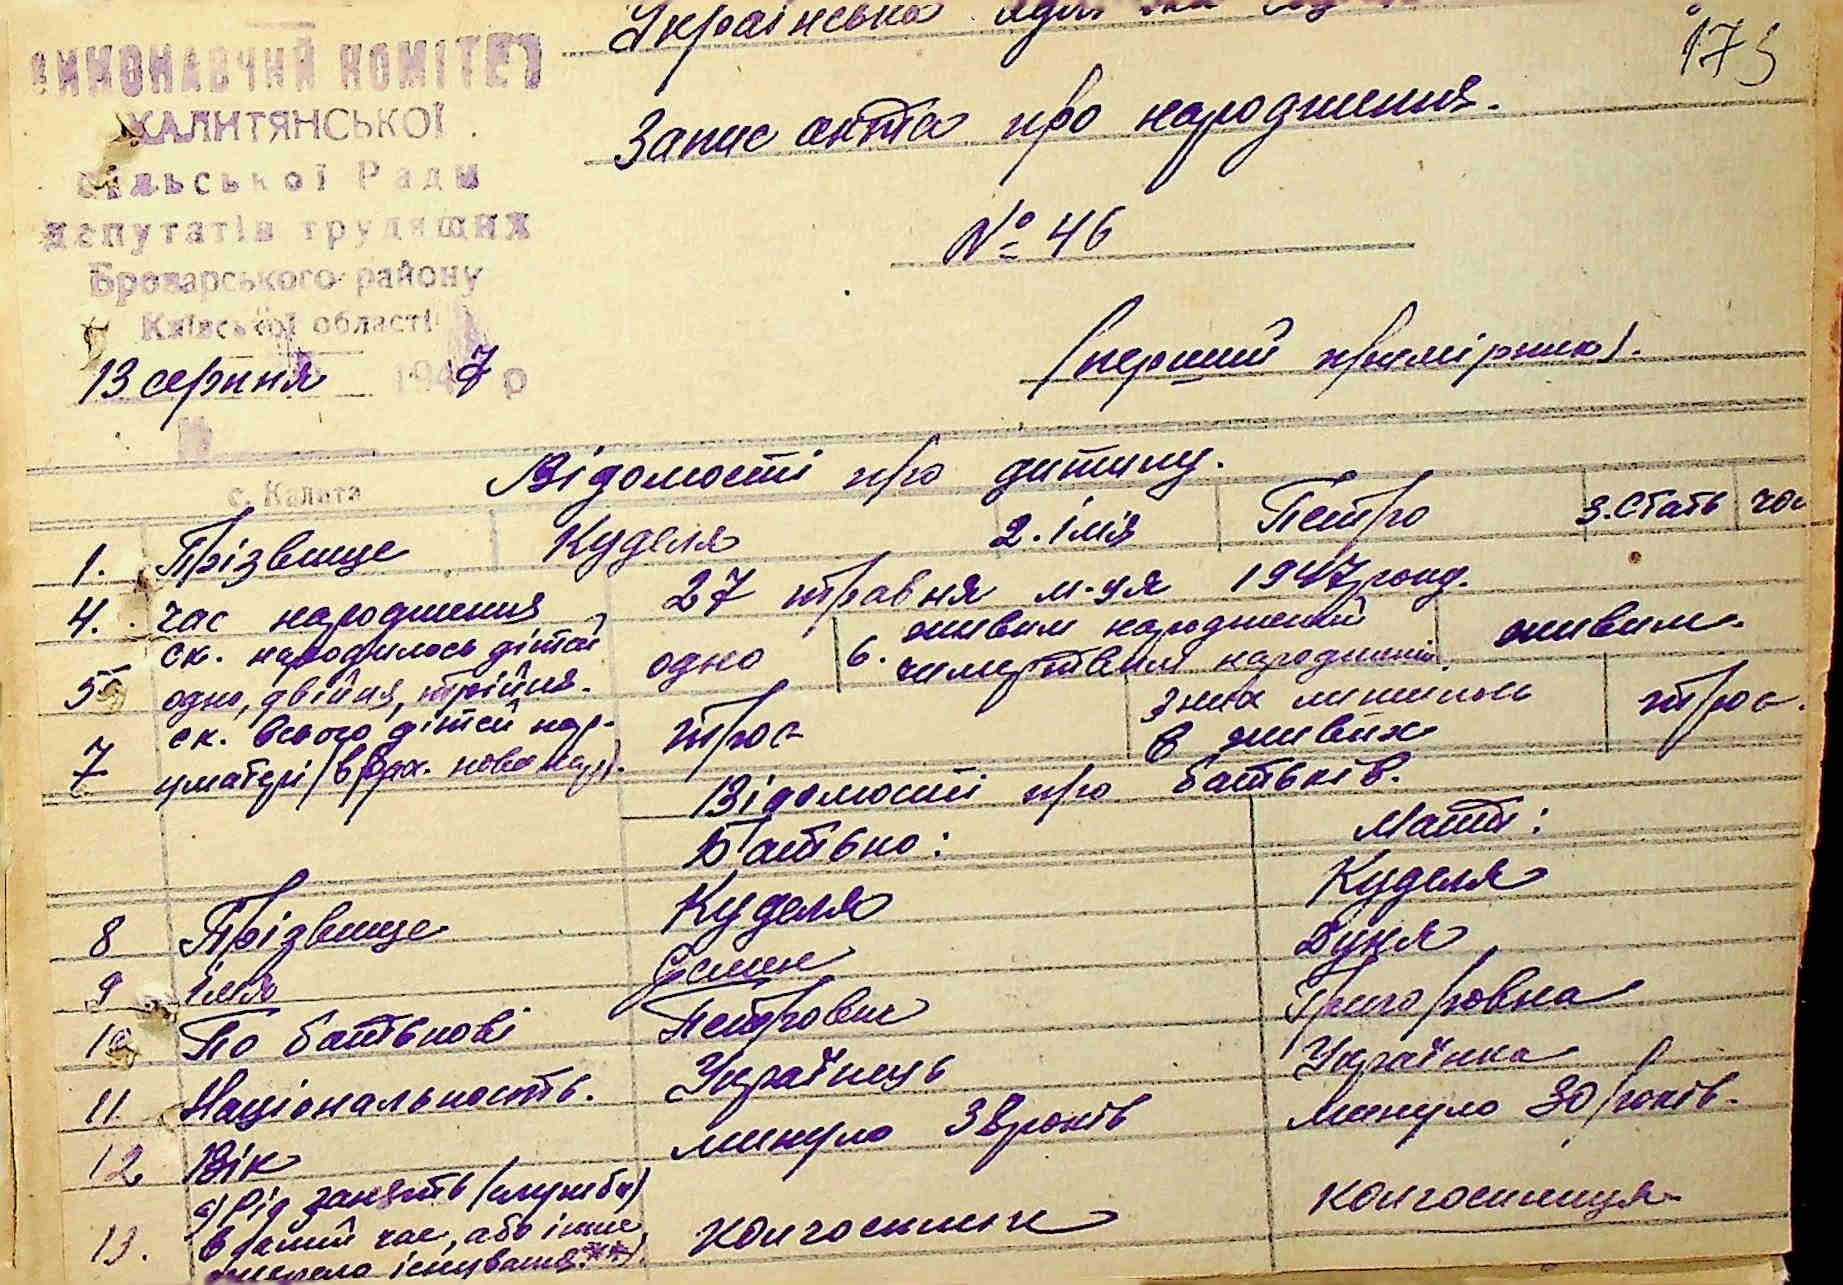 Українська
175
ВИКОНАВЧИЙ КОМІТЕТ
КАЛИТЯНСЬКОЇ
сільської Ради
депутатів трудящих
Броварського району
Київської області
13 серпня 1947 р
№
с. Калита
Запис акта про народження.
№ 46
(перший примірник).
Відомості про дитину.
1. Прізвище Куделя 2. Імя Петро 3. Стать чол
4. час народження 27 травня м-ця 1947 року.
5 ск. народилось дітей одно, двійня, трійня. одно 6. живим народжений чи мертвим народжений. живим.
7 ск. всього дітей нар. у матері (врах. новонар). троє з них лишилось в живих троє.
Відомості про батьків.
Батько: Мати:
8 Прізвище Куделя Куделя
9 Імя Семен Дуня
10 По батькові Петрович Григоровна
11 Національность. Українець Українка
12 Вік минуло 38 років минуло 30 років.
13. а) Рід занять (служба) в даний час, або інше джерело існування.**) колгоспник колгоспниця